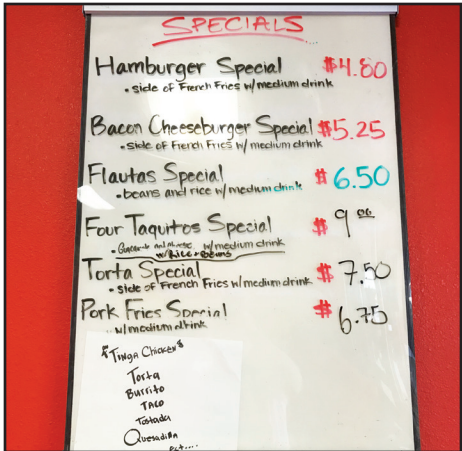 SPECIALS
Hamburger Special $4.80
• side of French Fries w/medium drink
Bacon Cheeseburger Special $5.25
• side of French Fries w/medium drink
Flautas Special $6.50
• beans and rice w/medium drink
Four Taquitos Special $9 00
• w/medium drink
w/Rice + Beans
Torta Special $7.50
• side of French Fries w/medium drink
Pork Fries Special $6.75
w/medium drink
Tinga Chicken
Torta
Burrito
TACO
Tostada
Quesadilla